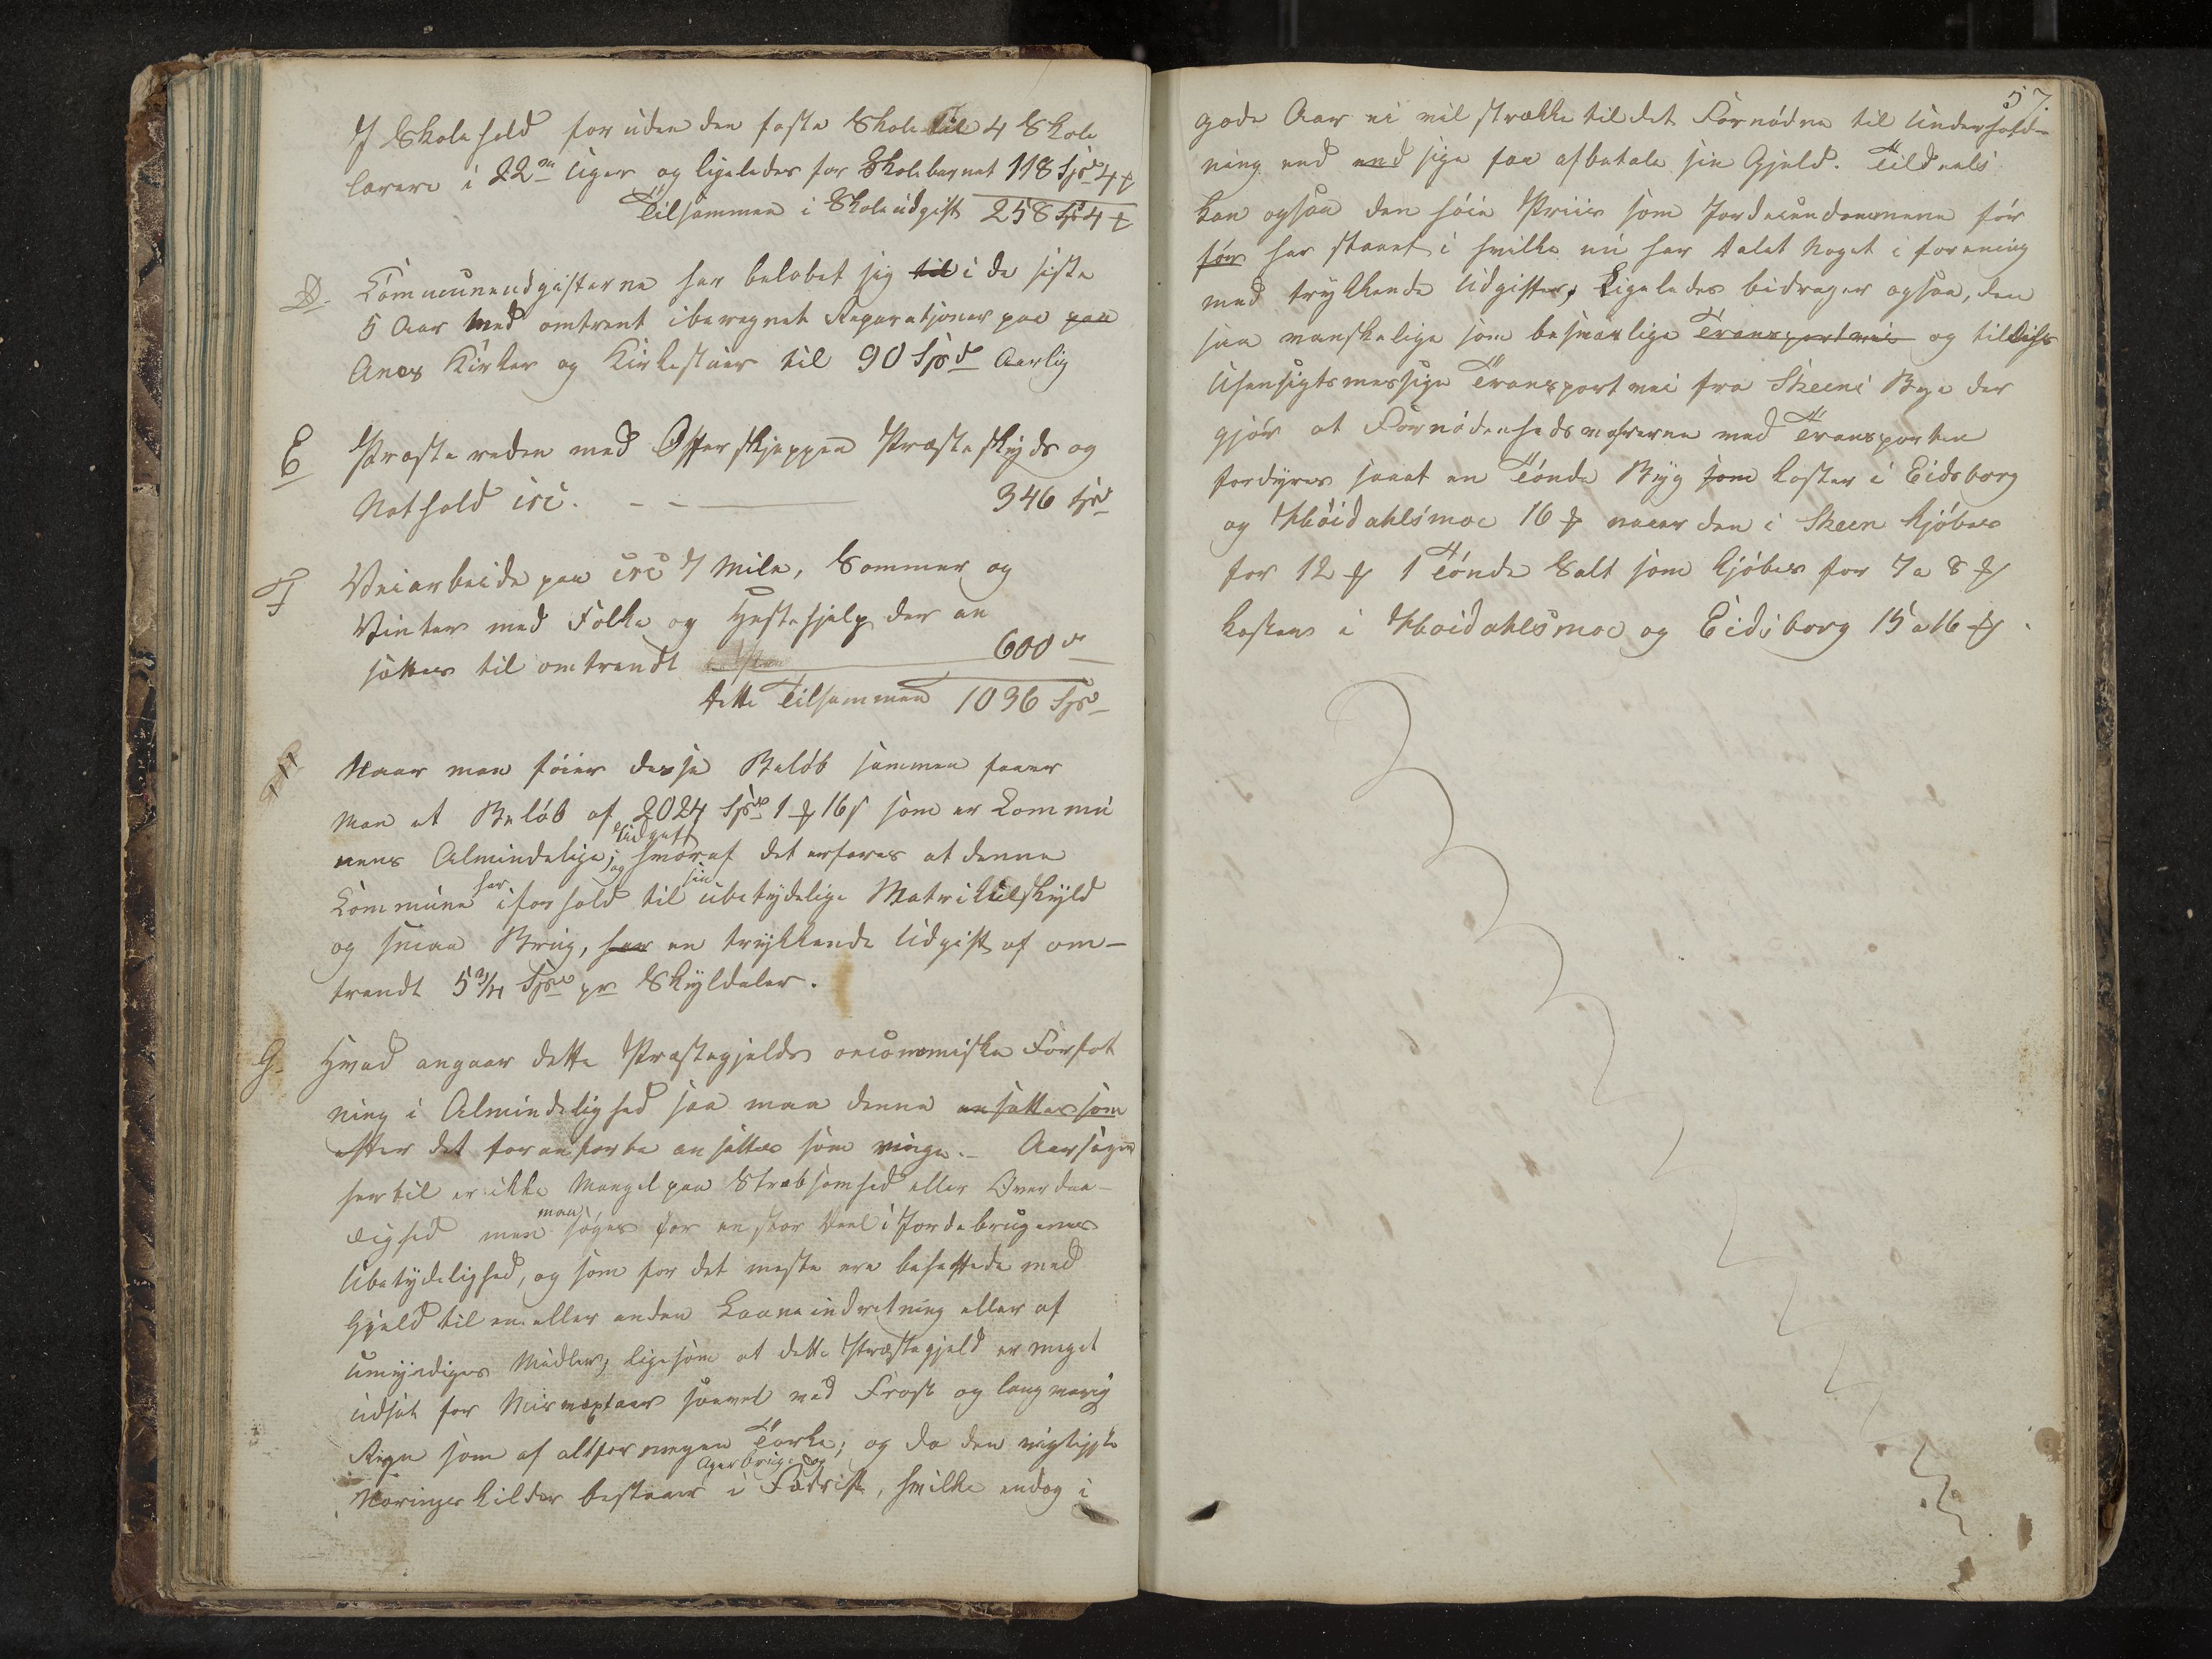 I Skolehold for uden den faste Skole Til 4 Skole
lærere i 22 Uger og ligeledes for Skolebygnet 118 Spd 4
Tilsammen i Skoleudgift 258 Spd 4
D. Communeudgifterne har beløbet sig til i de siste
5 Aar med omtrent iberegnet Reparationer paa paa
Anex Kirker og Kirkestuer til 90 Spd Aarlig
E Præste reden med Offer skjeppen Præste skyds og
Nathold irc. - - 346 Spd
F Veiarbeide paa circ 7 Mile, Sommer og
Vinter med Folke og Hestehjelp der an
sættes til omtrendt 600 "
dette Tilsammen 1036 Spd
Naar man føier disse Beløb sammen faaer
man et Beløb af 2024 Spd 1 16 s som er Commu
nens Almindelige Udgift; hvoraf det erfares at denne
Commune har i forhold til sin ubetydelige Matrikulskyld
og smaa Brug, har en trykkende Udgift af om-
trendt 5 3/4 Spd pr Skyldaler.
G. Hvad angaar dette Præstegjelds oeconomiske Forfat
ning i Almindelighed saa maa denne ansættes som
efter det foranførte ansættes som ringe. - Aarsagen
hertil er ikke Mangel paa Stræbsomhed eller Overdaa-
dighed men maa søges for en stor Deel i Jordebrugenes
Ubetydelighed, og som for det meste ere behæftede med
Gjeld til en eller anden Laaneindretning eller af
Umyndiges Midler; ligesom at dette Præstegjeld er meget
udsat for Misvæxtaar saavel ved Frost og langvarig
Regn som af altfor megen Tørke; og da den vigtigste
Agerbrug og
Nærings kilder bestaaer i Fædrift, hvilke endog i
57.
gode Aar ei vil strække til det Fornødne til Underhold-
ning end end sige faa afbetale sin Gjeld. Tildeels
kan ogsaa den høie Priis som Jordeiendommene før
før har staaet i hvilke nu har dalet Noget i forening
med trykkende Udgifter, Ligeledes bidrager ogsaa, den
saa vanskelige som besværlige Transportvei og tilligs
Uhensigtsmessige Transport vei fra Skeens Bye der
gjør at Fornødenhedsvahrerne med Transporten
fordyres saaat en Tønde Byg som koster i Eidsborg
og Høidahlsmoe 16 naar den i Skeen kjøbes
for 12 1 Tønde Salt som kjøbes for 7 a 8
kosten i Høidahlsmoe og Eidsborg 15 a 16 .